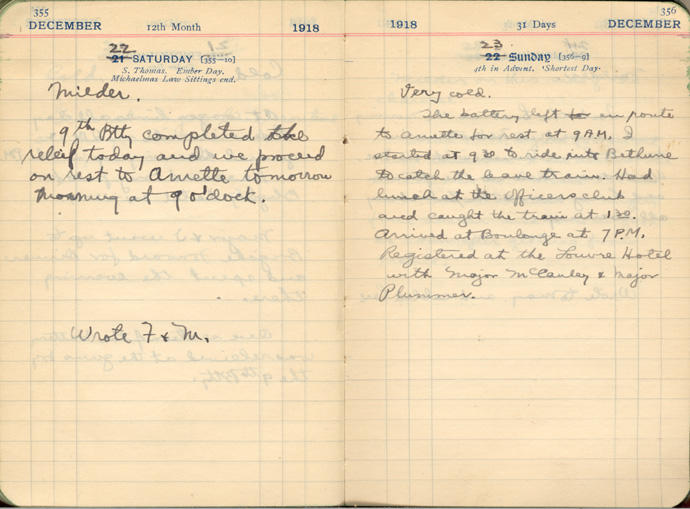 355
DECEMBER 12th Month 1918
22
21 SATURDAY [355–10]
S. Thomas. Ember Day.
Michaelmas Law Sittings end.
Milder.
9th Bty completed the
relief today and we proceed
on rest to Amette tomorrow
morning at 9 o'clock.
Wrote F & M.
356
1918 31 Days DECEMBER
23
22 Sunday [356–9]
4th in Advent. Shortest Day.
Very cold.
The battery left to en route
to Amette for rest at 9 A.M. I
started at 9 30 to ride into Bethune
to catch the leave train. Had
lunch at the officers club
and caught the train at 1 30.
Arrived at Boulonge at 7 P.M.
Registered at the Louvre Hotel
with Major McCauley & Major
Plummer.